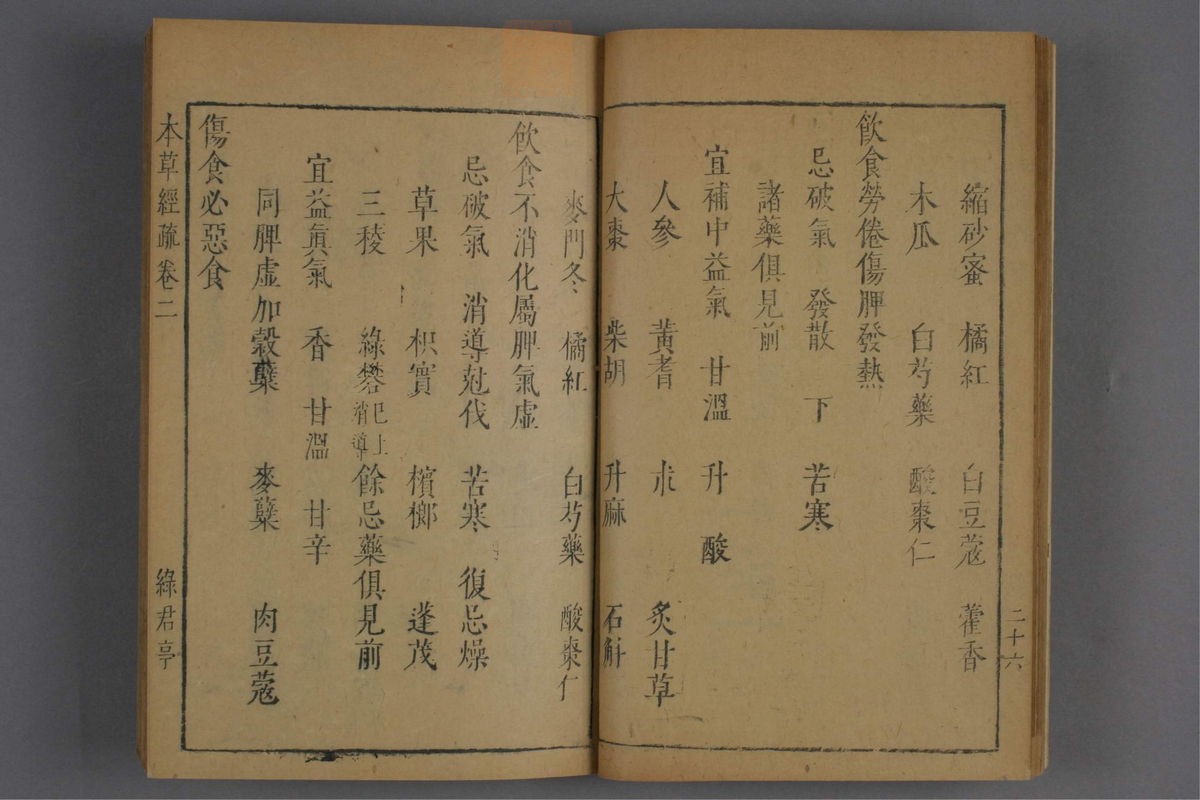 縮砂蜜 橘紅 白豆蔻 藿香
木瓜 白芍藥 酸棗仁
飲食勞倦傷脾發熱
忌破氣 發散 下 苦寒
諸藥俱見前
宜補中益氣 甘溫 升 酸
人參 黃耆 朮 炙甘草
大棗 柴胡 升麻 石斛
二十六
麥門冬 橘紅 白芍藥 酸棗仁
飲食不消化屬脾氣虛
忌破氣 消導尅伐 苦寒 復忌燥
草果 枳實 檳榔 蓬茂
三稜 綠礬已上消導餘忌藥俱見前
宜益眞氣 香 甘溫 甘辛
同脾虛加穀蘖 麥蘖 肉豆蔻
傷食必惡食
本草經疏 卷二 綠君亭